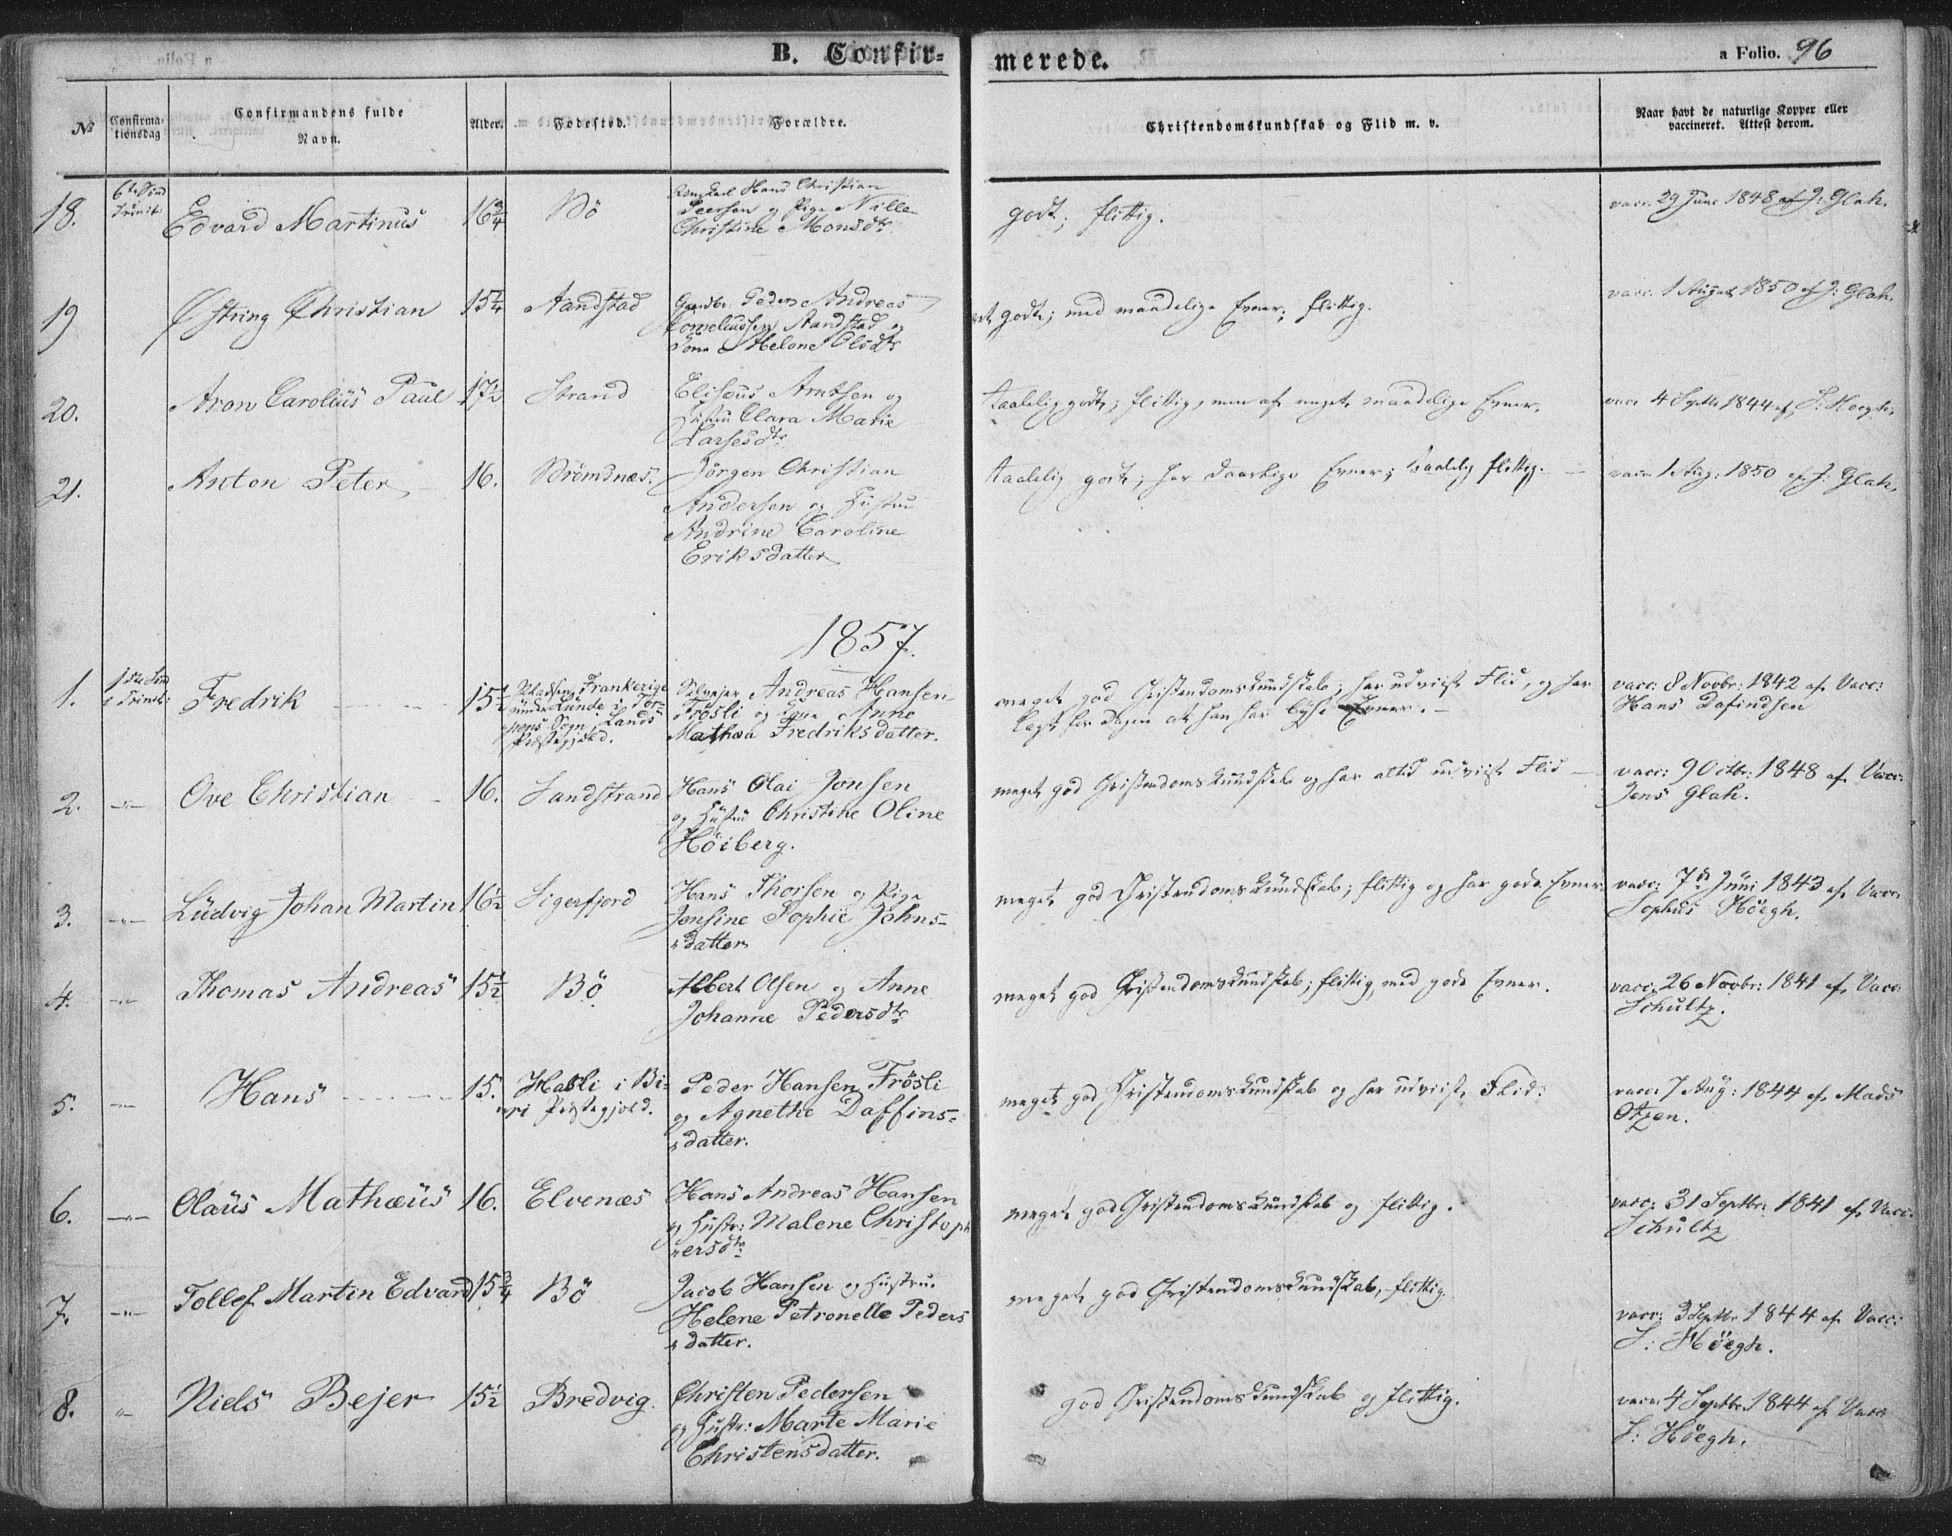 B. Confir-
merede.
a Folio. 96
No
Confirma-
tionsdag
Confirmandens fulde
Navn.
Alder.
Fødested.
Forældre.
Christendomskundskab og Flid m. v.
Naar havt de naturlige Kopper eller
vaccineret. Attest derom.
18. Edvard Martinus 16 3/4 Bö
Hans Christian
Peersen og Pige Nille
Christine Monsdtr
godt; flittig.
vacc. 29 Juni 1848 af J: Glah.
19 Østring Christian 15 1/4 Aandstad
Peder Andreas
Corneliussen Aandstad og
Helene Olsdtr
godt; med maadelige Evner; flittig.
vacc. 1 August 1850 af J: Glah.
20. Aron Carolius Paul 17 1/2 Strand
Eliseus Arntsen og
Hustru Clara Marie
Larsesdtr
taalelig godt; flittig, men af meget maadelige Evner.
vacc 4 Septbr 1844 af S: Høegh.
21. Anton Peter 16. Strömsnæs.
Jörgen Christian
Andersen og Hustru
Andrine Caroline
Eriksdatter
taalelig godt; har daarlige Evner; taalelig flittig.
vacc 1 Aug: 1850 af J: Glah.
1857.
1. Fredrik 15 1/2
Andreas Hansen
Frösli og Anne
Mathea Fredriksdatter.
meget god Christendomskundskab; har udviist Flid, og har
lagt for Dagen at han har Evner.
vacc: 8 Novbr: 1842 af Vacc:
Hans Dafindsen
2. Ove Christian 16. Sandstrand
Hans Olai Jonsen
og Hustru Christine Oline
Höiberg.
meget god Christendomskundskab og har altid udviist Flid
vacc: 9 Octbr: 1848 af Vacc:
Jens Glah.
3. Lüdvig Johan Martin 16 1/2 Sigerfjord
Hans Thorsen og Pige
Jonsine Sophie Johns-
datter
meget god Christendomskundskab; flittig og har gode Evner
vacc: 7de Juni 1843 af Vacc.
Sophus Höegh.
4. Thomas Andreas 15 1/2 Bö
Albert Olsen og Anne
Johanne Pedersdtr
meget god Christendomskundskab; flittig, med gode Evner.
vacc: 26 Novbr: 1841 af Vacc
Schultz.
5. Hans 15. Hasli i Bi-
ri Præstegjeld.
Peder Hansen Frösli
og Agnethe Daffins-
datter.
meget god Christendomskundskab og har udviist Flid:
vacc: 7 Aug: 1844 af Mads
Otzen.
6. Olaüs Mathæüs 16. Elvenæs
Hans Andreas Hansen
og Hustr: Malene Christoph
ersdtr
meget god Christendomskundskab og flittig.
vacc: 31 Septbr: 1841 af Vacc:
Schultz
7. Tollef Martin Edvard 15 3/4 Bö
Jacob Hansen og Hustru
Helene Petronelle Peders
datter.
meget god Christendomskundskab, flittig.
vacc: 3 Septbr 1844 af Vacc:
S: Höegh.
8. Niels Bejer 15 1/2 Bredvig.
Christen Pedersen
og Hustr: Marte Marie
Christensdatter.
god Christendomskundskab og flittig.
vacc: 4 Septbr. 1844 af Vacc
S: Höegh.